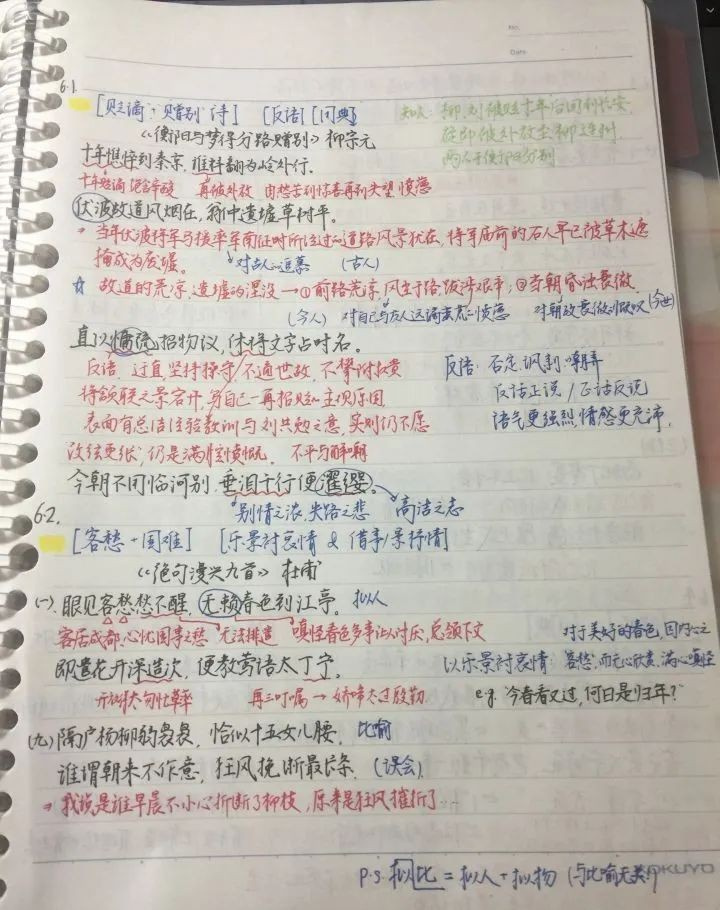 No.
Date
6.1.
[贬谪、赠别 诗] [反语] [用典]
知人：柳、刘被贬十年后回到长安，
《衡阳与梦得分路赠别》柳宗元
旋即被外放至柳、连州，
两人于衡阳分别
十年憔悴到秦京，谁料翻为岭外行。
十年贬谪 饱含辛酸 再被外放 由愁苦到惊喜再到失望 愤懑
伏波故道风烟在，翁仲遗墟草树平。
→ 当年伏波将军马援率军南征时所经过的道路风景犹在，将军庙前的石人早已被草木遮
掩成为废墟。 对古人的追慕 (古人)
☆ 故道的荒凉，遗墟的湮没 → ① 前路荒凉，风尘路，跋涉艰辛；② 当朝昏浊衰微
(今人) 对自己与友人远谪蛮荒的愤懑 对朝政衰微的叹(今世)
直以慵疏招物议，休将文字占时名。
反语，过直坚持操守/不通世故，不攀附权贵
反语：否定、讽刺、嘲弄
将颔联之景宕开，写自己一再招贬的主观原因
反话正说/正话反说
表面有总结经验教训与刘共勉之意，实则仍不愿
语气更强烈，情感更充沛
改弦更张，仍是满腔愤慨 不平与自嘲
今朝不用临河别，垂泪千行便濯缨。
别情之浓，失路之悲 高洁之志
6.2.
[客愁+国难] [乐景衬哀情 & 借事/景抒情]
《绝句漫兴九首》 杜甫
(一) 眼见客愁愁不醒，无赖春色到江亭。 拟人
客居成都，心忧国事之愁 无法排遣 嗔怪春色多事似讨厌，总领下文
对于美好的春色，因内心之
即遣花开深造次，便教莺语太丁宁。
以乐景衬哀情 客愁，而无心欣赏，满心嗔怪
开得太匆忙草率 再三叮嘱 → 娇啼太过殷勤
eg. "今春看又过，何日是归年？"
(九) 隔户杨柳弱袅袅，恰似十五女儿腰。 比喻
谁谓朝来不作意，狂风挽断最长条。 (误会)
→ 我说是谁早晨不小心折断了柳枝，原来是狂风摧折了…
P.S. 拟比 = 拟人 + 拟物 (与比喻无关!)
KOKUYO